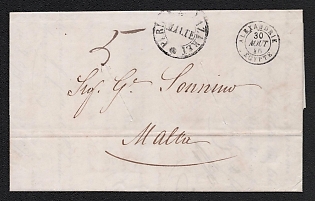 5
ALEXANDRIE
30
AOUT
EGYPTE
Sig. G. Sonnino
Malta